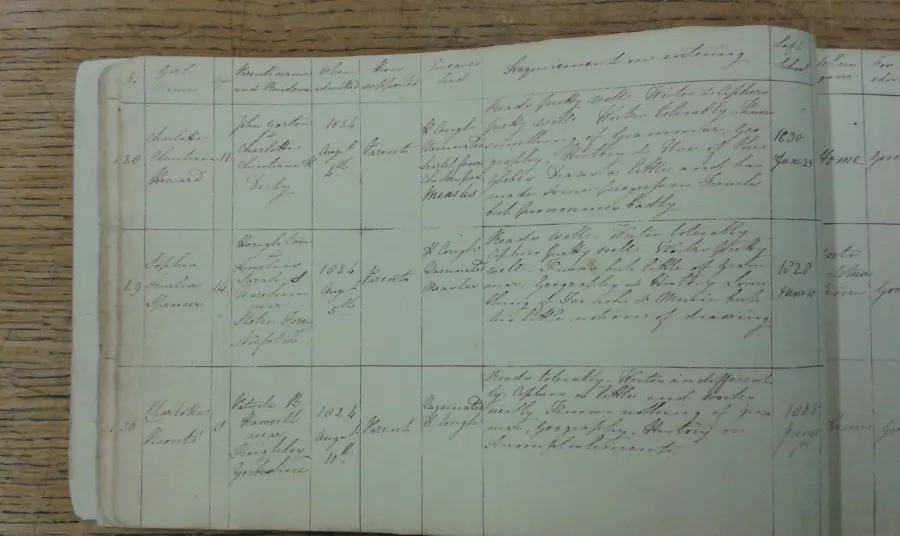 No.
Girls Name
Age
Parents names and Residence
When admitted
How supported
Diseases had
Acquirements on entering
Left School
Where gone
For educ
28
Charlotte
Christiana
Howard
11
John Garton
&
Charlotte
Christiana H
Derby
1824
Augst
4th
Parents
H Cough
Vaccinated
Scarlet fever
Chickenpox
Measles
Reads pretty well. Writes & Cyphers
pretty well. Works tolerably. Knows
something of Grammar, Geo
graphy, History & Use of the
Globes Draws a little and has
made some progress in French
but pronounces badly
1830
June 23
Home
29
Sophia
Spencer
14
Houghton
&
Sarah S.
near
Stoke
Norfolk
1824
Augst
5th
Parents
H Cough
Vaccinated
Measles
Reads well. Writes tolerably
Cyphers pretty well. Works pretty
well. Knows but little of Gram
mar, Geography & History. Some
thing of French & Music but
but little notions of drawing
1828
June
30
Charlotte
Brontë
8
Patrick B.
Haworth
near
Keighley
Yorkshire
1824
Augst
10th
Parents
Vaccinated
H Cough
Reads tolerably. Writes indifferent
ly. Cyphers a little and works
neatly. Knows nothing of Gram
mar, Geography, History or
Accomplishments.
Home